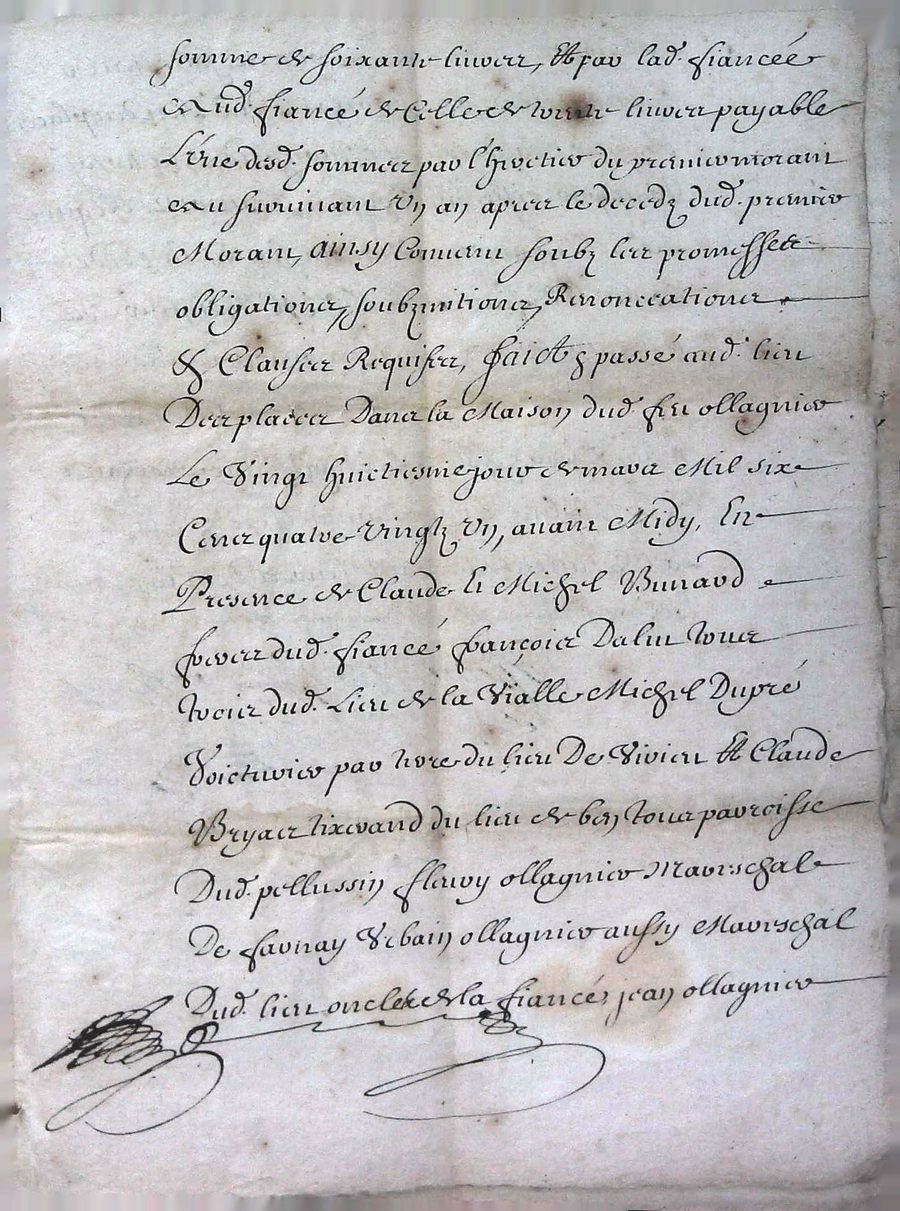 somme de soixante livres, Et par lad. fiancée
aud. fiancé de Celle de trente livres payable
L'une desd. sommes par l'heretier du premier morant
au survivant Un an apres le decedz dud. premier
Morant, ainsy Convenu soubz les promesses
obligations, soubzmitions, Renonceations
& Clauses Requises, faict & passé aud. lieu
Des places Dans la Maison dud. feu ollagnier
Le Vingt huictiesme jour de mars Mil six
Cens quatre vingtz Un, avant Midy, En
Presence de Claude Et Michel
freres dud. fiancé françois
dud. Lieu de la Vialle Michel Dupré
Voicturier par terre du lieu De Virieu Et Claude
tixerand du lieu de parroisse
Dud. pellussin fleury ollagnier Mareschal
De farnay Urbain ollagnier aussy Mareschal
Dud. lieu oncles de la fiancée, jean ollagnier